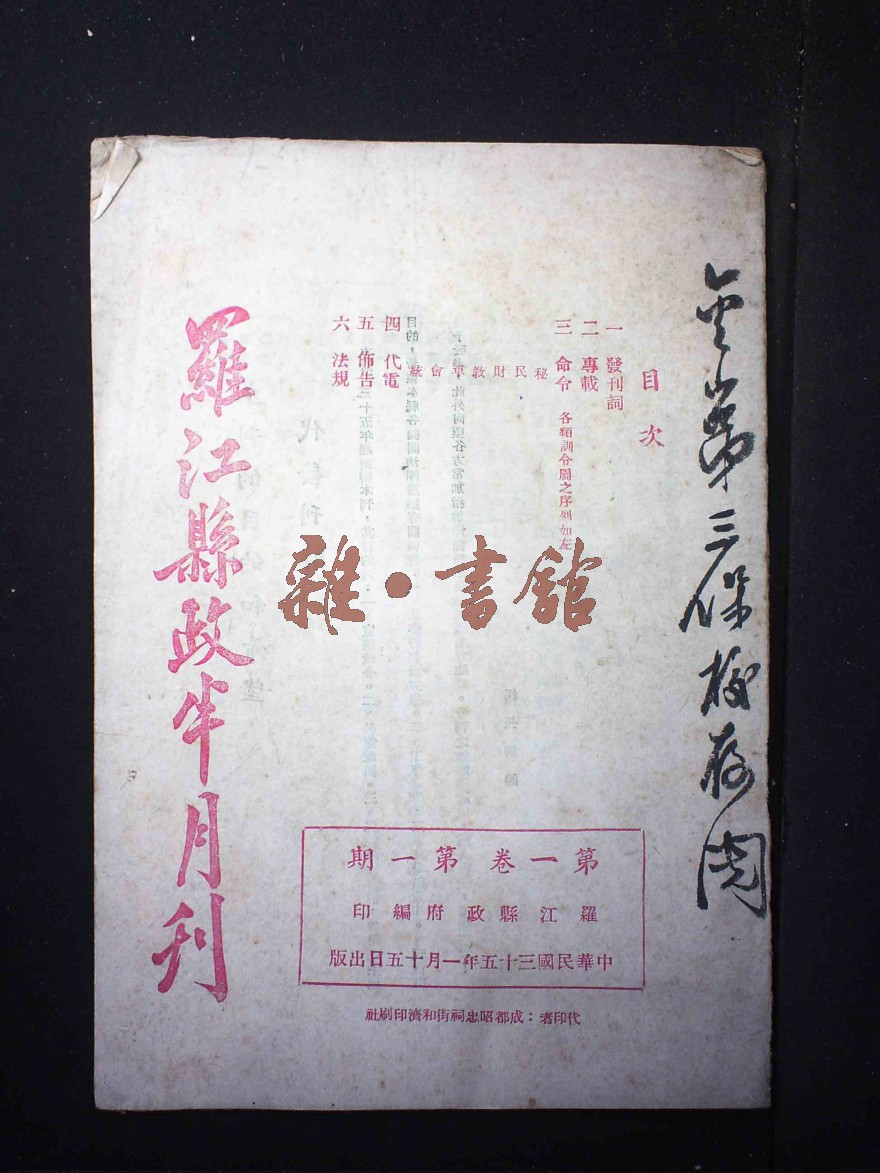 金山第三保校存閱
目次
一 發刊詞
二 專載
三 命令 各類訓令屬之序列如左
秘民財教軍會統
四 代電
五 佈告
六 法規
第一卷 第一期
羅江縣政府編印
中華民國三十五年一月十五日出版
代印者：成都昭忠祠街和濟印刷社
羅江縣政半月刊
雜·書館